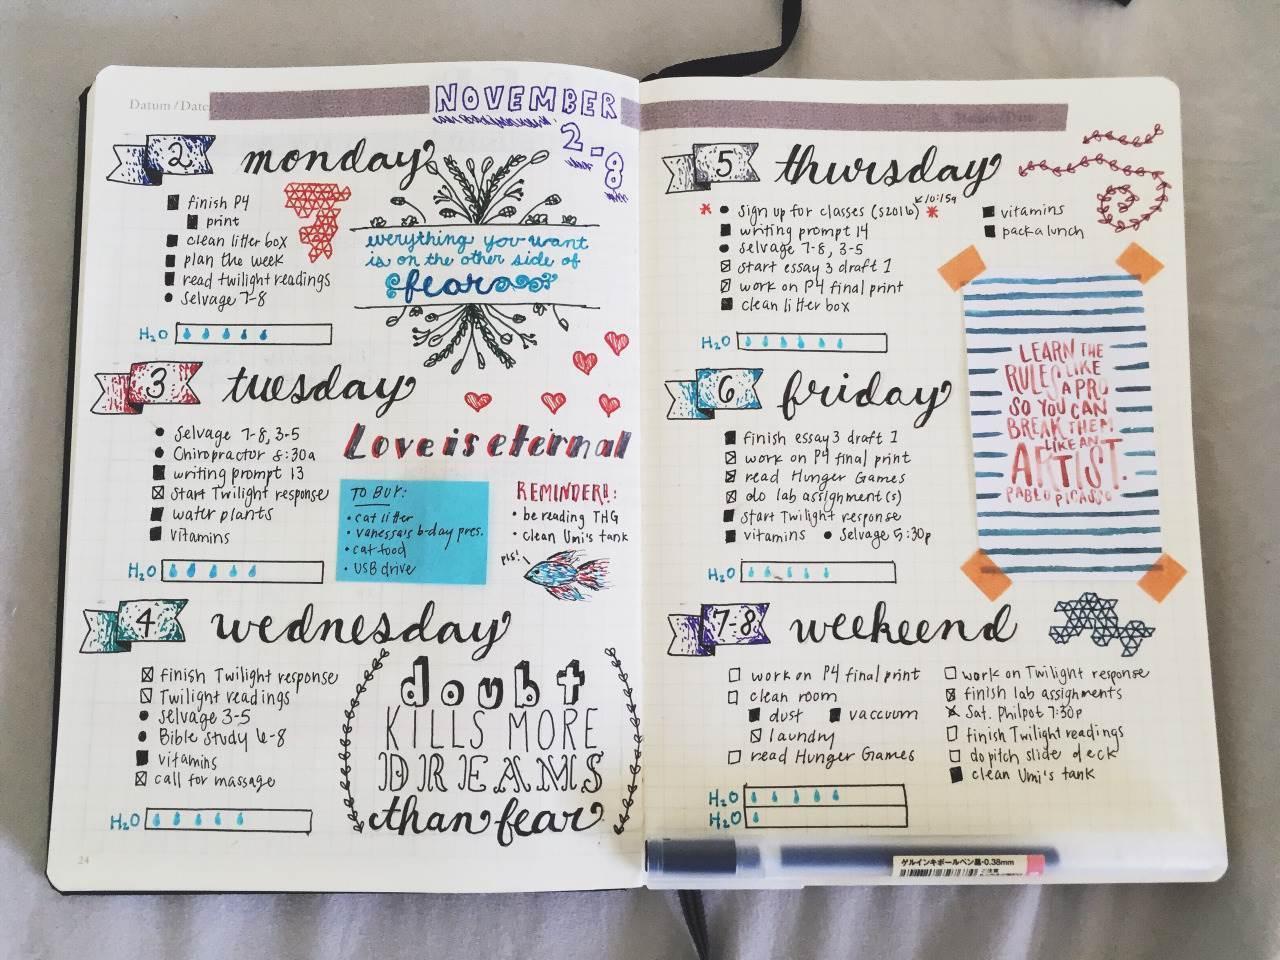 Datum / Date:
NOVEMBER
2-8
2 monday
finish P4
print
clean litter box
plan the week
read twilight readings
Selvage 7-8
H2O
everything you want
is on the other side of
fear
3 tuesday
Selvage 7-8, 3-5
Chiropractor 8:30a
writing prompt 13
Start Twilight response
water plants
vitamins
H2O
Love is eternal
TO BUY:
• cat litter
• vanessa's b-day pres.
• cat food
• USB drive
REMINDER!!:
• be reading THG
• clean Umi's tank
pls!
4 wednesday
finish Twilight response
Twilight readings
Selvage 3-5
Bible Study 6-8
vitamins
call for massage
H2O
doubt
KILLS MORE
DREAMS
than fear
24
5 thursday
10:15a
* Sign up for classes (S2016) *
writing prompt 14
Selvage 7-8, 3-5
start essay 3 draft 1
work on P4 final print
clean litter box
vitamins
pack a lunch
H2O
LEARN THE
RULES LIKE
A PRO
SO YOU CAN
BREAK THEM
LIKE AN
ARTIST.
PABLO PICASSO
6 friday
finish essay 3 draft 1
work on P4 final print
read Hunger Games
do lab assignment(s)
start Twilight response
vitamins • Selvage 5:30p
H2O
7-8 weekend
work on P4 final print
clean room
dust vaccuum
laundry
read Hunger Games
work on Twilight response
finish lab assignments
Sat. Philpot 7:30p
finish Twilight readings
do pitch slide deck
clean Umi's tank
H2O
H2O
ゲルインキボールペン黒・0.38mm